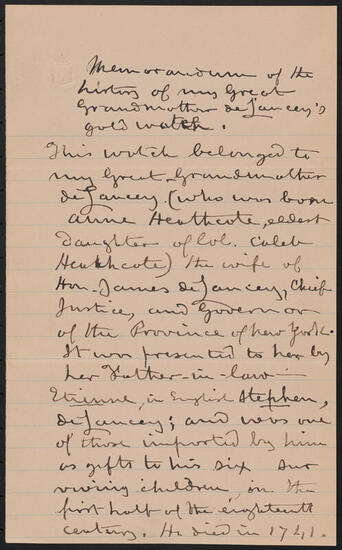 Memorandum of the
history of my Great
Grandmother de Lancey's
gold watch.
This watch belonged to
my Great Grandmother
de Lancey. (who was born
Anne Heathcote, eldest
daughter of Col. Caleb
Heathcote) the wife of
Hon. James de Lancey, Chief
Justice, and Governor
of the Province of New York.
It was presented to her by
her Father-in-law—
Etienne, in English Stephen,
de Lancey; and was one
of those imported by him
as gifts to his six sur
viving children, in the
first half of the eighteenth
century. He died in 1741.